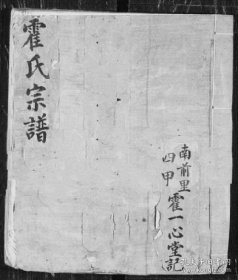 霍氏宗譜
南前里
四甲
霍一心堂記